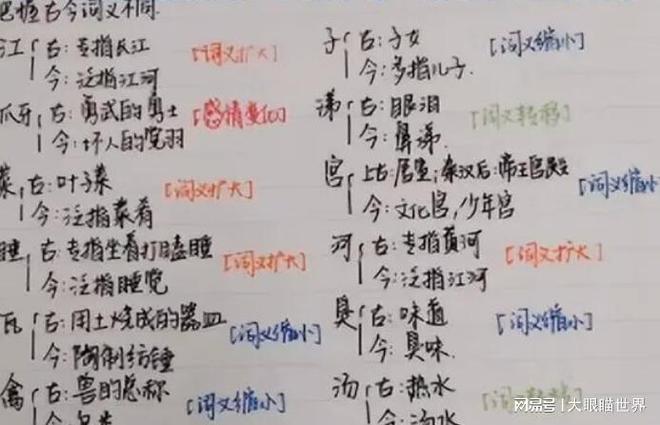 把握古今词义不同.
江 古:专指长江 [词义扩大]
今:泛指江河
爪牙 古:勇武的勇士 [感情变化]
今:坏人的党羽
菜 古:叶子菜 [词义扩大]
今:泛指菜肴
睡 古:专指坐着打瞌睡 [词义扩大]
今:泛指睡觉
瓦 古:用土烧成的器皿 [词义缩小]
今:陶制纺锤
禽 古:兽的总称 [词义缩小]
子 古:子女 [词义缩小]
今:多指儿子.
涕 古:眼泪 [词义转移]
今:鼻涕.
宫 上古:居室;秦汉后:帝王宫殿 [词义缩小
今:文化宫,少年宫
河 古:专指黄河 [词义扩大]
今:泛指江河
臭 古:味道 [词义缩小]
今:臭味.
汤 古:热水
今:汤水
网易号 | 大眼瞄世界